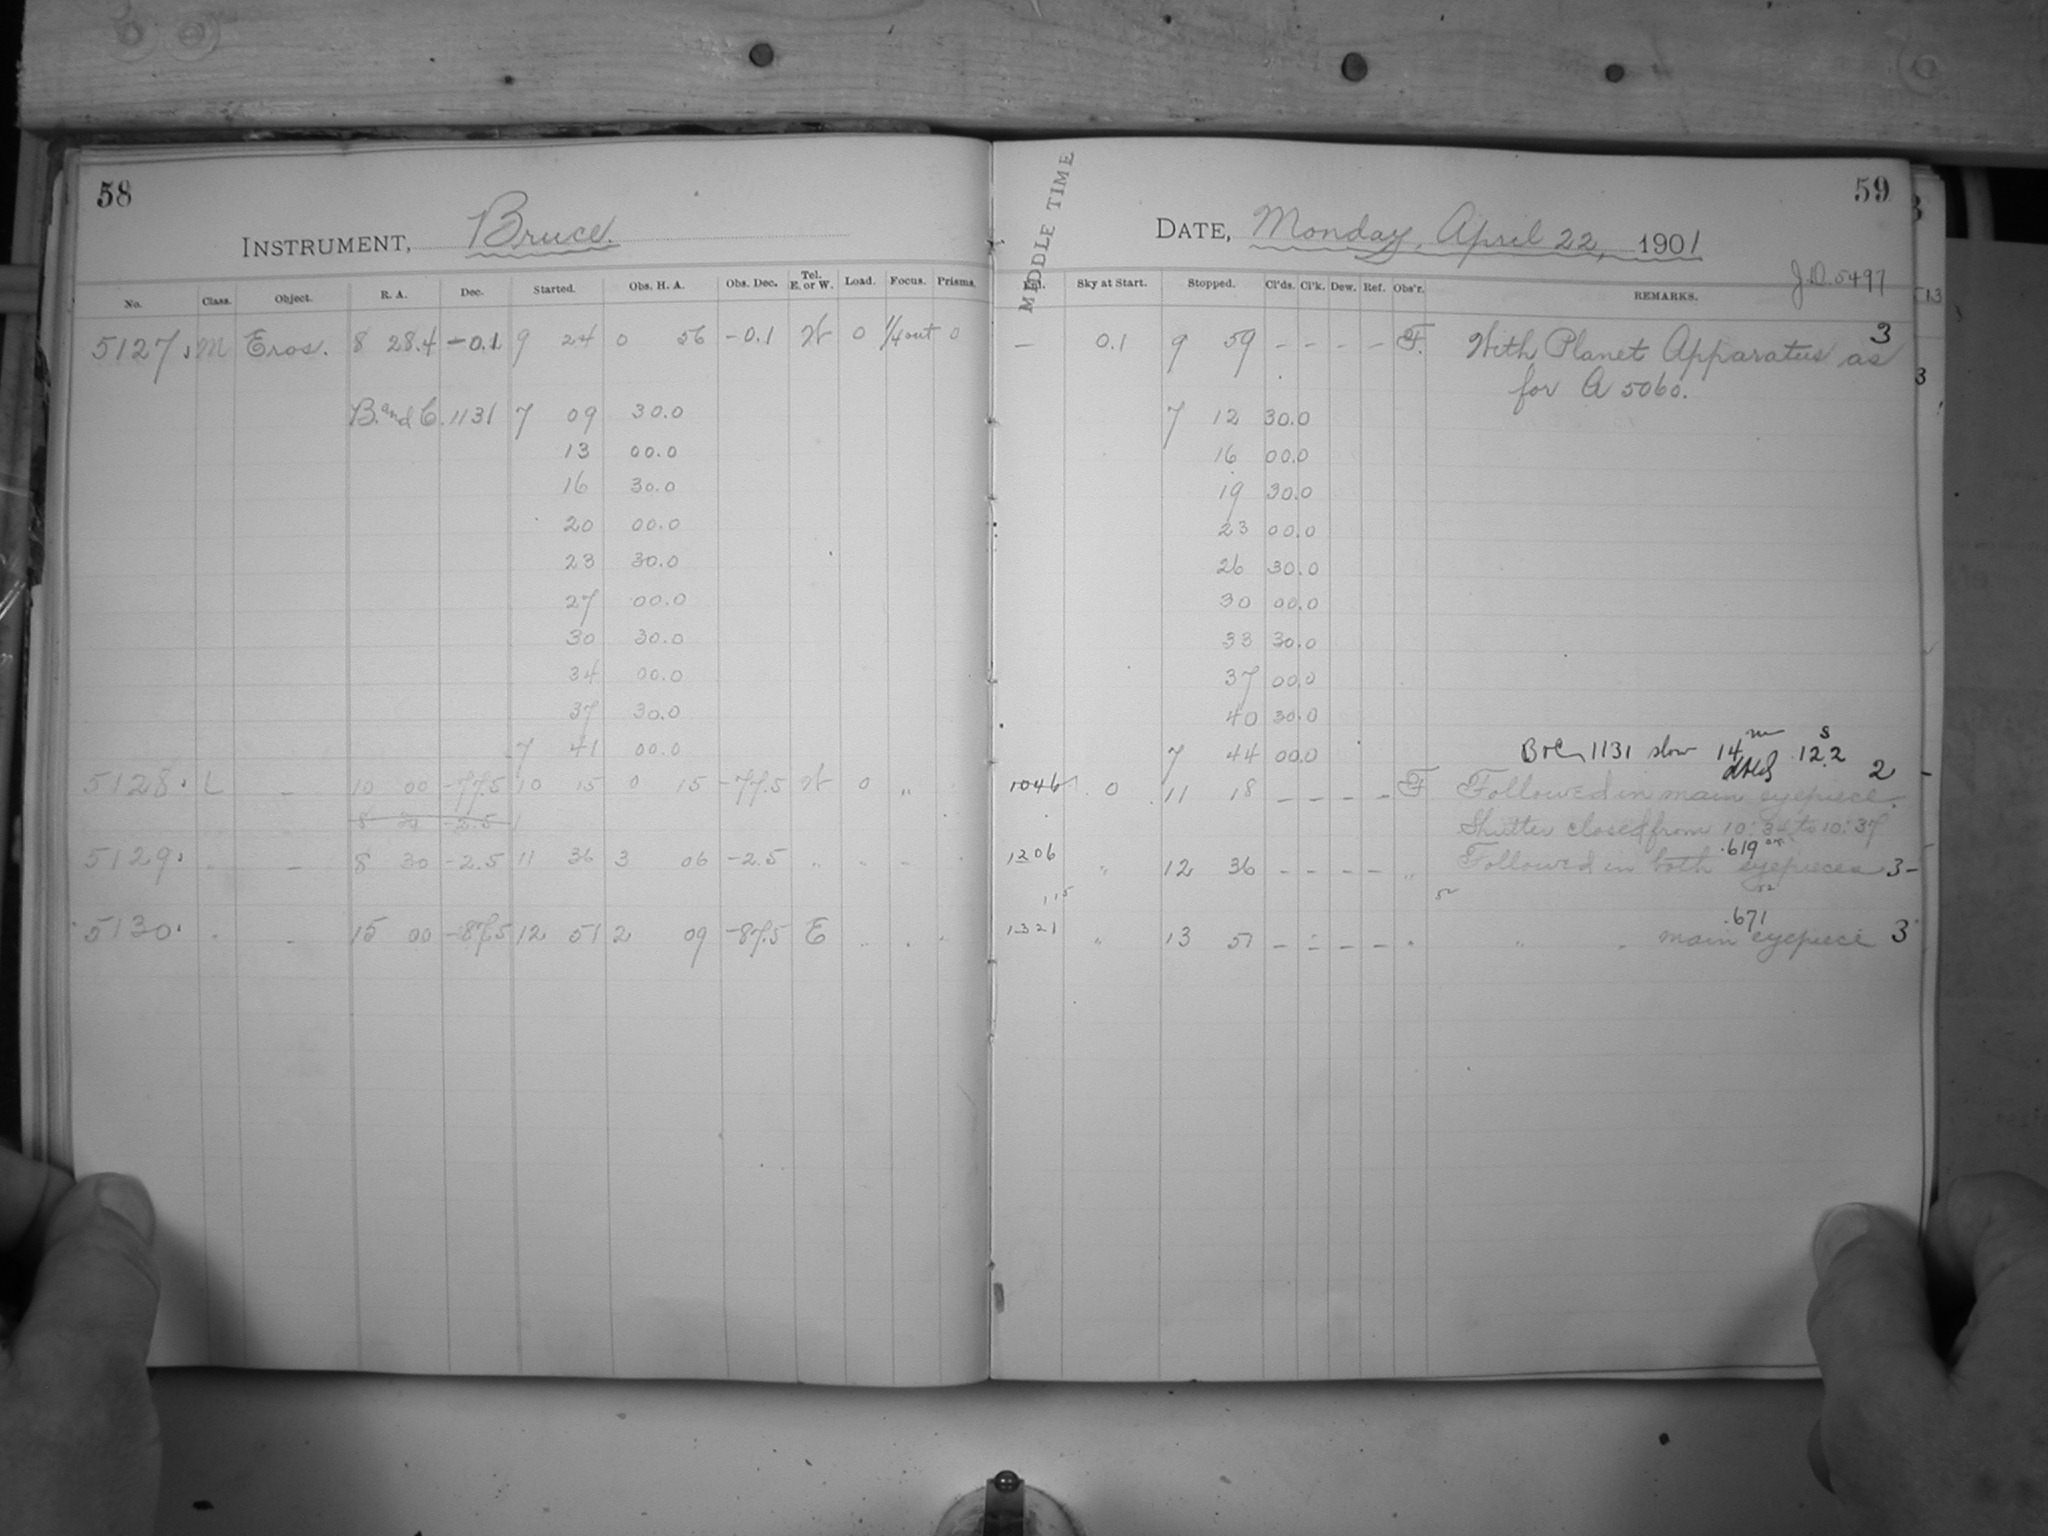 58
INSTRUMENT, Bruce.
No. Class. Object. R. A. Dec. Started. Obs. H. A. Obs. Dec. Tel. E. or W. Load. Focus. Prisms.
5127. M Eros. 8 28.4 -0.1 9 24 0 56 -0.1 W 0 1/4 out 0
B. and C. 1131 7 09 30.0
13 00.0
16 30.0
20 00.0
23 30.0
27 00.0
30 30.0
34 00.0
37 30.0
7 41 00.0
5128. L - 10 00 -77.5 10 15 0 15 -77.5 W 0 "
8 30 -2.5
5129. - 8 30 -2.5 11 36 3 06 -2.5 " " " "
5130. - 15 00 -87.5 12 51 2 09 -87.5 E
59
MIDDLE TIME
DATE, Monday, April 22, 1901
J.D. 5497
Sky at Start. Stopped. Cl'ds. Cl'k. Dew. Ref. Obs'r. REMARKS.
— 0.1 9 59 - - - - F. With Planet Apparatus as 3
for A 5060.
7 12 30.0
16 00.0
19 30.0
23 00.0
26 30.0
30 00.0
33 30.0
37 00.0
40 30.0
7 44 00.0 B & C 1131 slow 14m 12.2s
1046 0 11 18 - - - - F Followed in main eyepiece. 2
Shutter closed from 10:34 to 10:37
.619
1206 " 12 36 - - - - " Followed in both eyepieces 3-
115
.671
1321 " 13 51 - - - - " " " main eyepiece 3